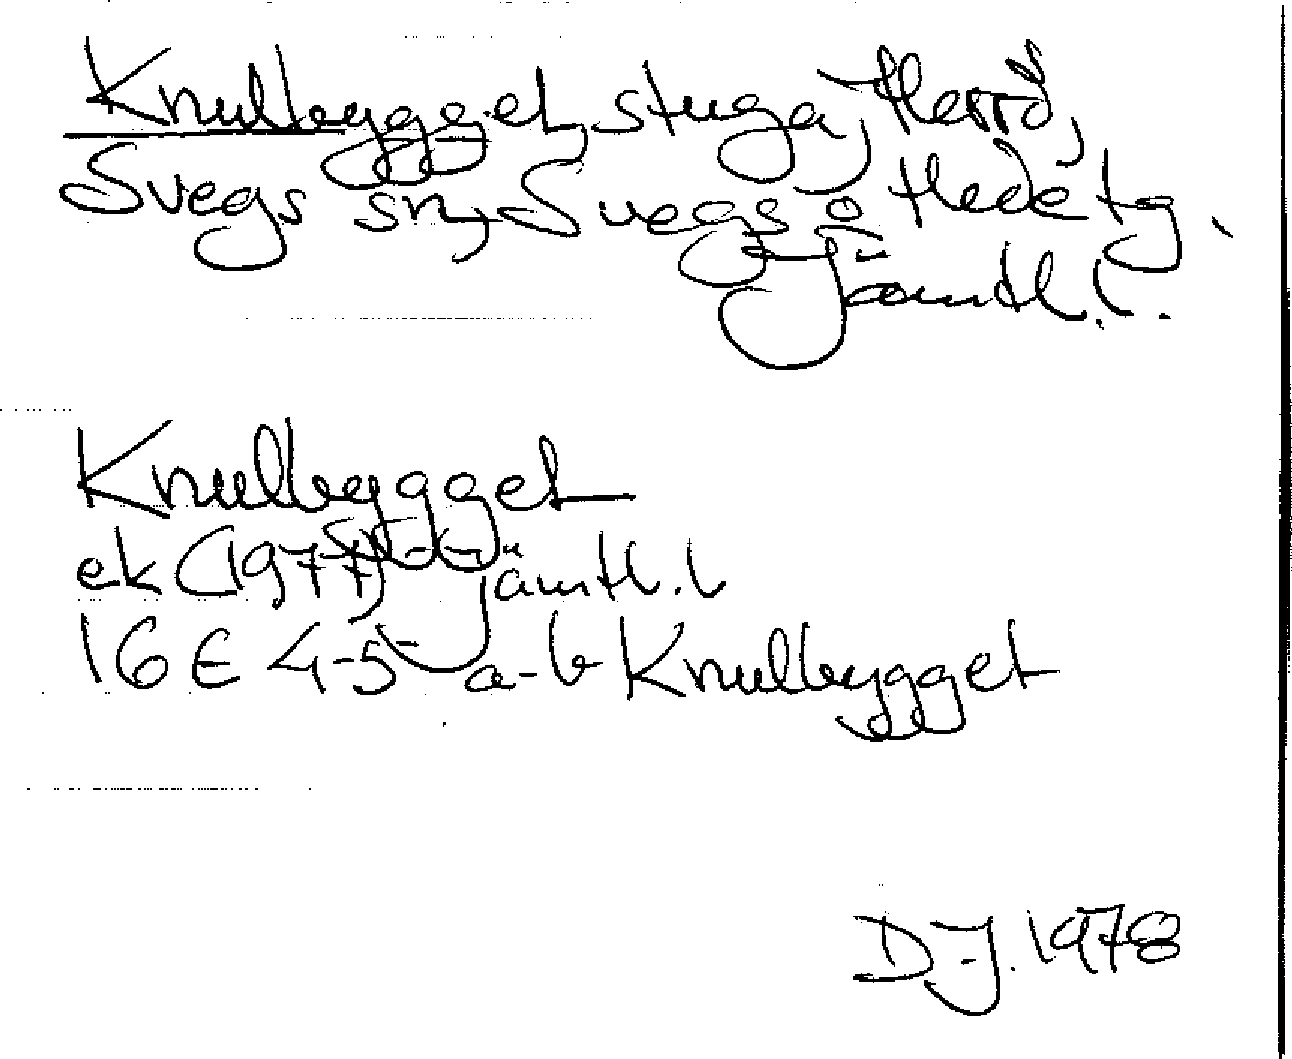 Knullbygget, stuga, Herrö,
Svegs sn, Svegs o Hede tg.
Jämtl. l.
Knullbygget
ek (1977) Jämtl. l
16E 4-5 a-b Knullbygget
D-J. 1978